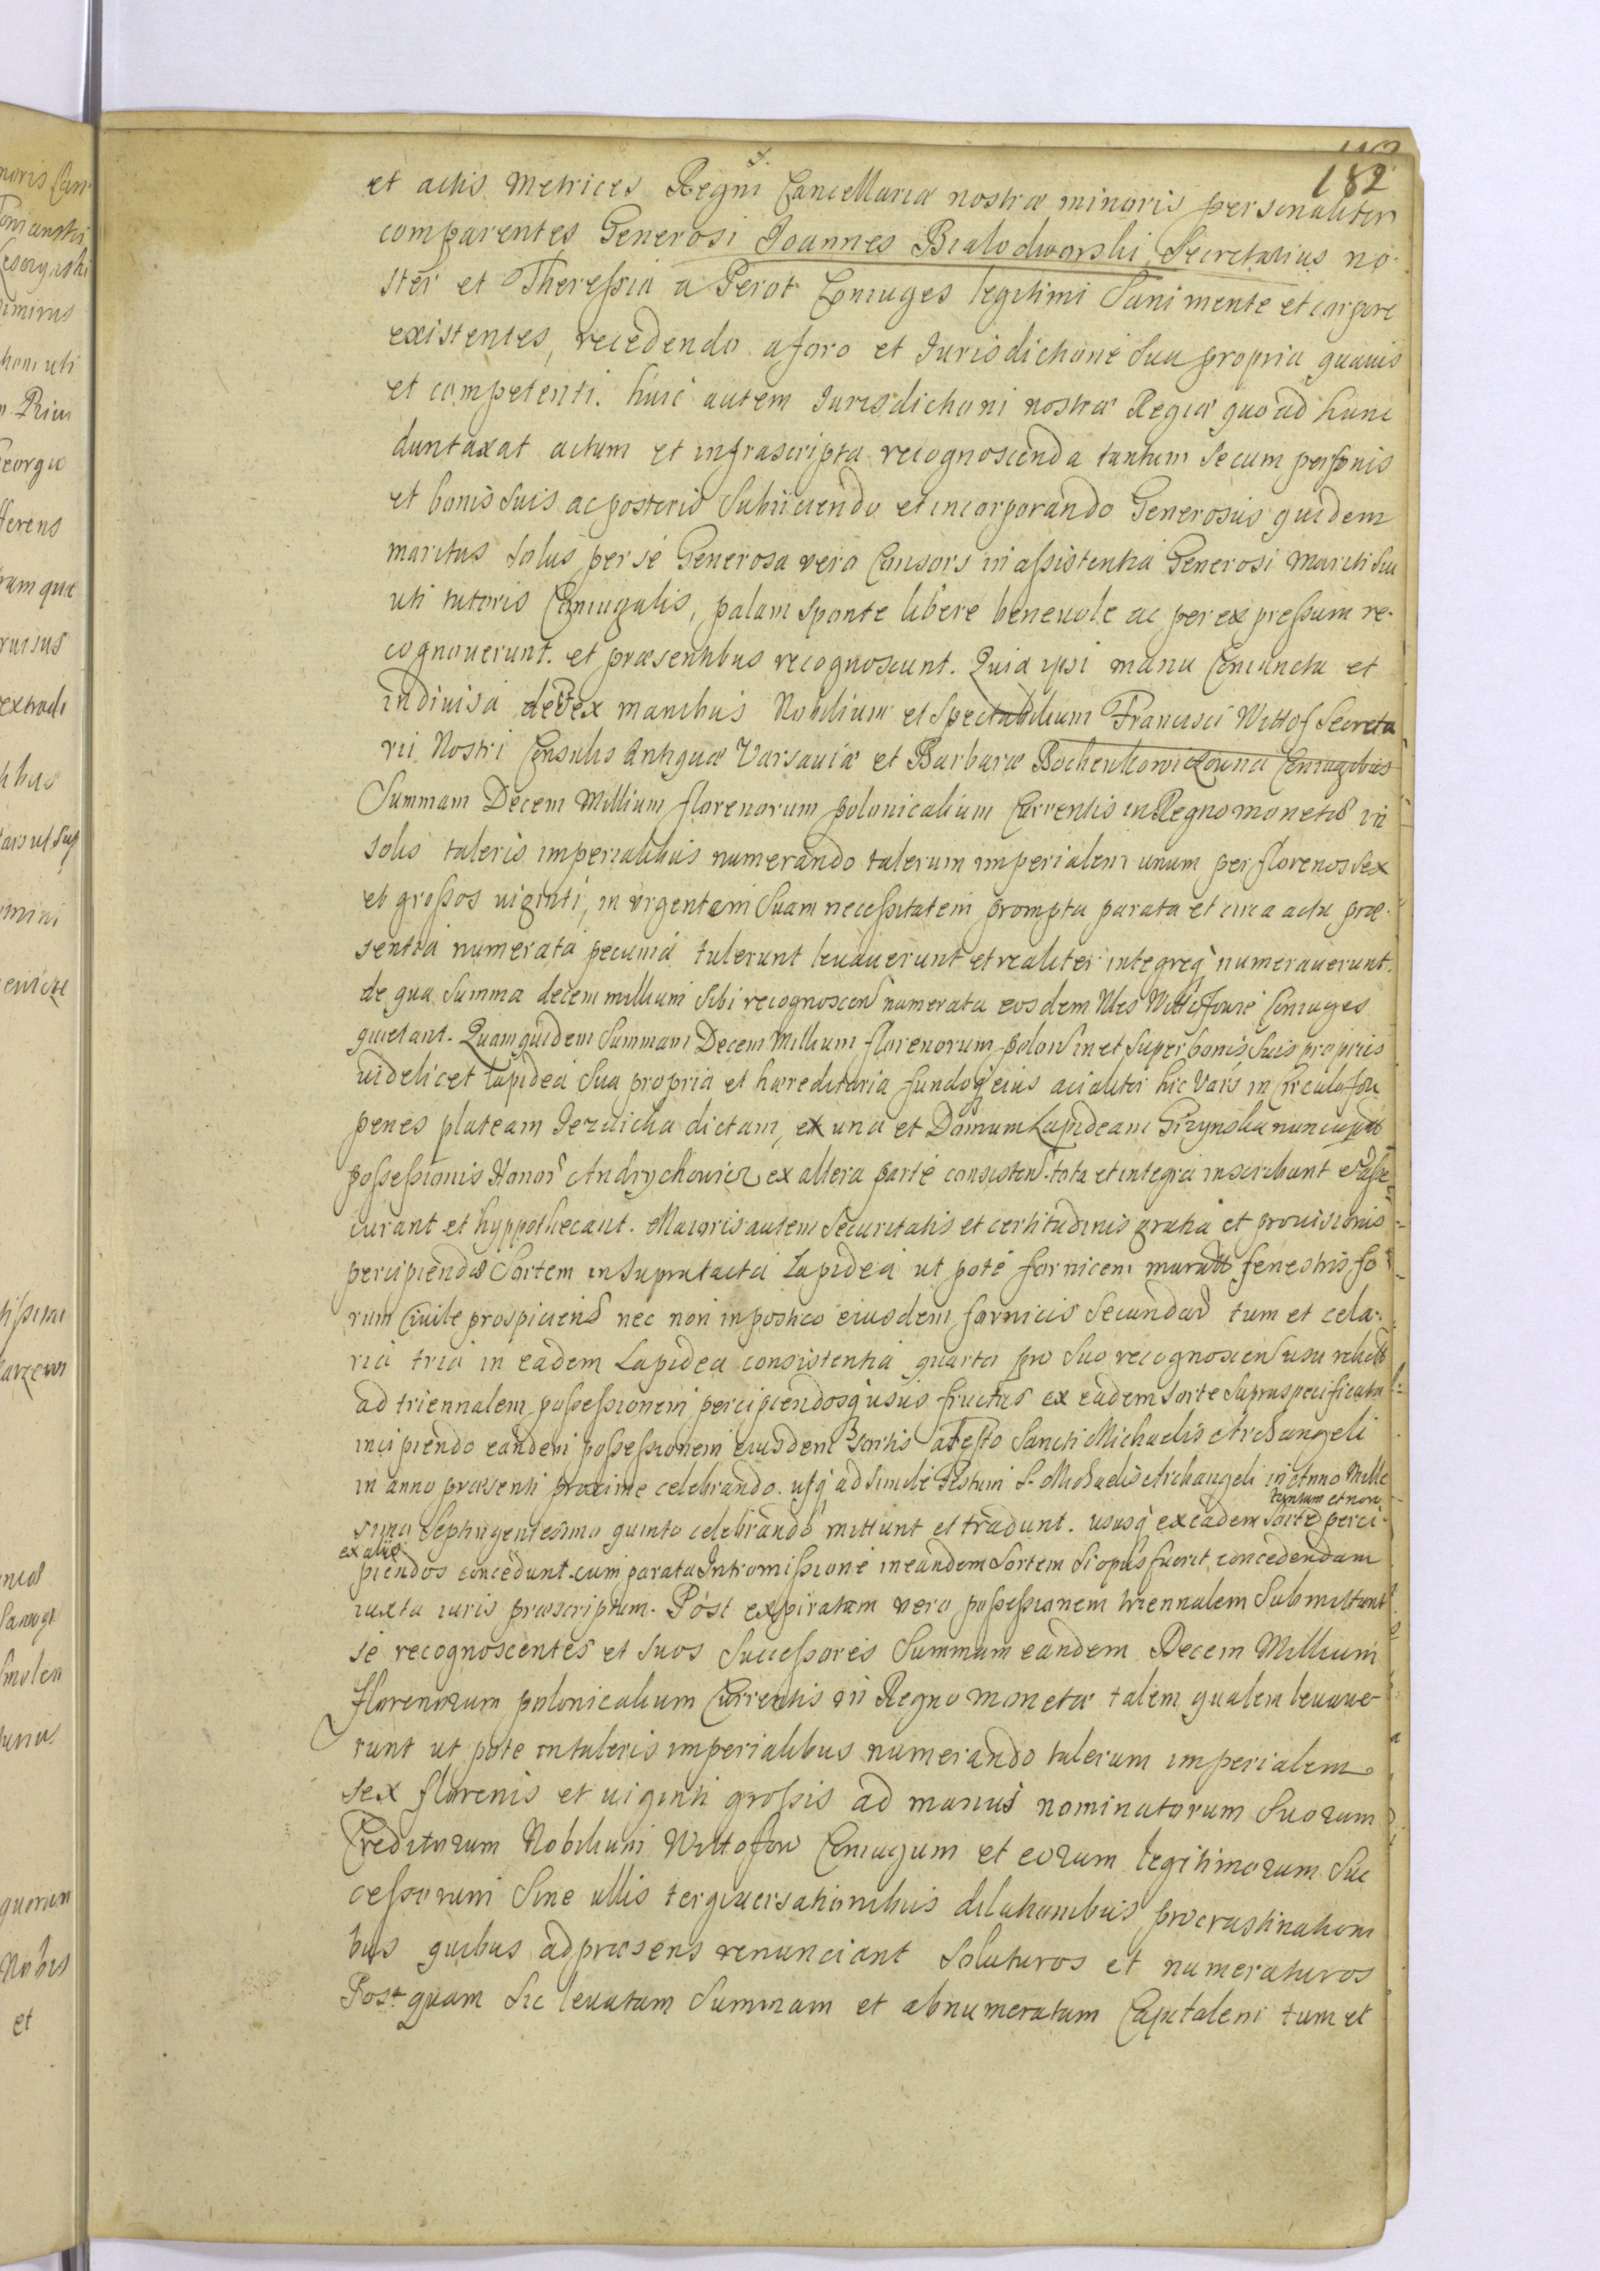 182
et actis Metrices Regni Cancellariæ nostræ minoris personaliter
comparentes Generosi Joannes Bialodworski Secretarius no-
ster et Theressia a Perot Coniuges legitimi Sani mente et corpore
existentes, recedendo a foro et Jurisdictione sua propria quavis
et competenti. huic autem Jurisdictioni nostræ Regiæ quo ad hunc
duntaxat actum et infrascripta recognoscenda tantum se cum personis
et bonis suis ac posteris subiiciendo et incorporando Generosus quidem
maritus solus per se Generosa vero Consors in assistentia Generosi mariti sui
uti tutoris Coniugalis, palam sponte libere benevole ac per expressum re-
cognoverunt et præsentibus recognoscunt. Quia ipsi manu Coniuncta et
indivisa de et ex manibus Nobilium et Spectabilium Francisci Wittof Secreta
rii Nostri Consulis Antiquæ Varsaviæ et Barbaræ Bochenkowiczowna Coniugibus
Summam Decem Millium florenorum polonicalium Currentis in Regno monetæ in
solis taleris imperialibus numerando talerum imperialem unum per florenos sex
et grossos viginti, in urgentem Suam necessitatem prompta parata et circa acta præ-
sentia numerata pecunia tulerunt levaverunt et realiter integreq numeraverunt.
de qua Summa decem millium sibi recognoscen numerata eosdem Nbles Wittoffowie Coniuges
quietant. Quamquidem Summam Decem Millium florenorum polon in et super bonis suis propriis
videlicet lapidea sua propria et hæreditaria fundoq eius aciali hic Vars in Circulo fori
penes plateam Jezuicka dictam, ex una et Domum Lapideam Gizynska nuncupat
possessionis Honor Andrychowicz ex altera parte consisten tota et integra inscribunt et asse-
curant et hyppothecant. Maioris autem securitatis et certitudinis gratia et provisionis
percipiendæ Sortem in supratacta Lapidea ut pote fornicem muratt fenestris fo-
rum Civile prospiciens nec non in postico eiusdem fornicis secundas tum et cela-
ria tria in eadem Lapidea consistentia quarta pro suo recognoscen usu relicta
ad triennalem possessionem percipiendosq usus fructus ex eadem sorte supraspecificata
incipiendo eandem possessionem eiusdem Sortis a Festo Sancti Michaelis Archangeli
in anno præsenti proxime celebrando usq ad simile Festum S. Michaelis Archangeli in Anno Mille
tantum et non
simo Septingentesimo quinto celebrando mittunt et tradunt. ususq ex eadem sorte perci-
ex aliis
piendos concedunt cum parata Intromissione in eandem Sortem si opus fuerit concedendam
iuxta iuris præscriptum. Post expiratam vero possessionem triennalem Submittunt
se recognoscentes et suos Successores Summam eandem Decem Millium
florenorum polonicalium Currentis in Regno Monetæ talem qualem levave-
runt ut pote in taleris imperialibus numerando talerum imperialem
sex florenis et viginti grossis ad manus nominatorum Suorum
Creditorum Nobilium Wittofow Coniugum et eorum legitimorum Suc
cessorum Sine ullis tergiversationibus dilationibus procrastinationi
bus quibus ad præsens renunciant soluturos et numeraturos
Post quam sic levatam Summam et abnumeratam Capitalem tum et